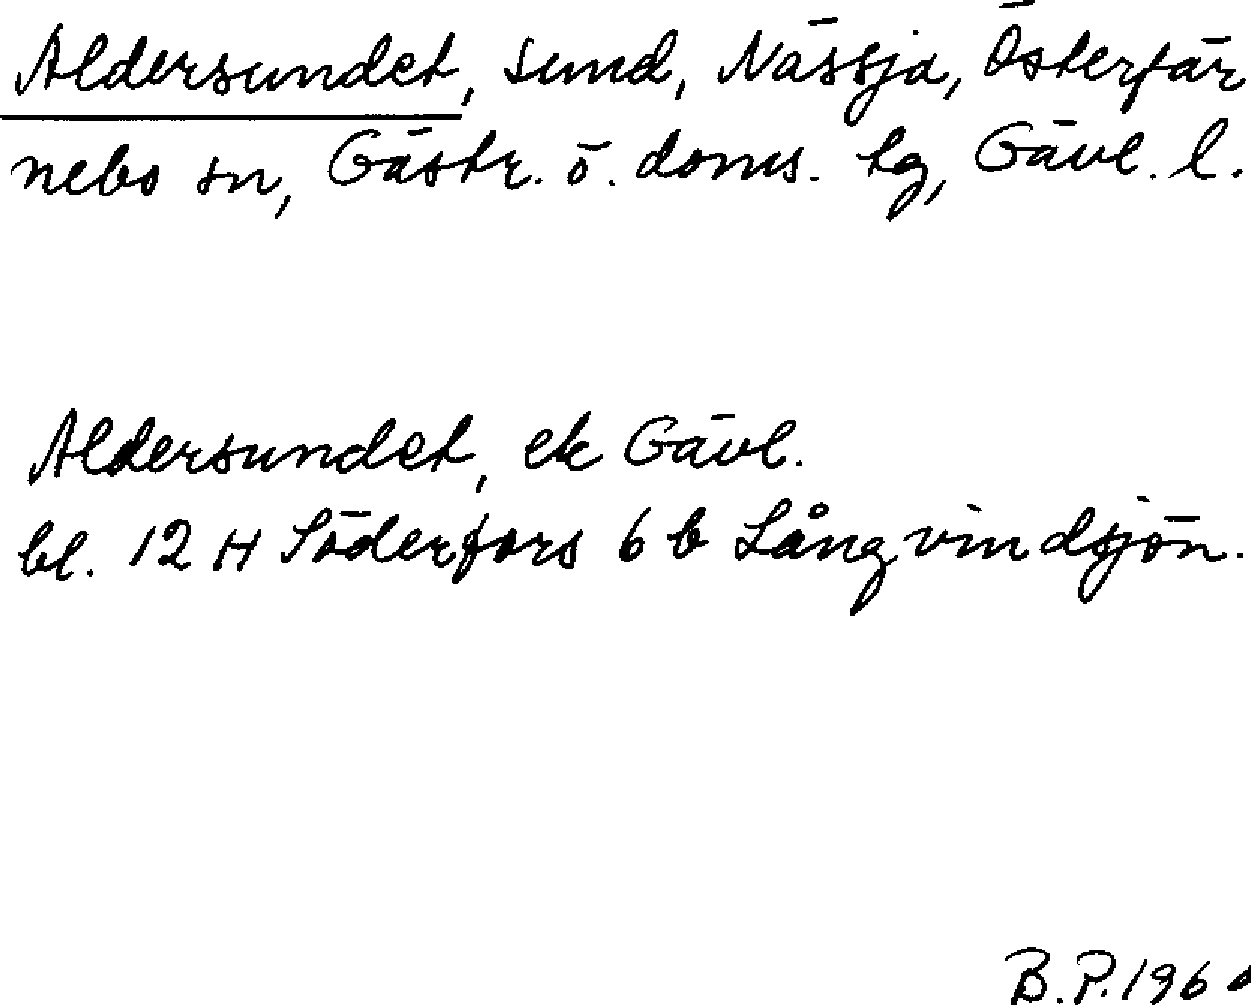 Aldersundet, sund, Nässja, Österfär
nebo sn, Gästr. ö. doms. tg, Gävl. l.
Aldersundet, ek Gävl.
bl. 12 H Söderfors 6 b Långvindsjön.
B.P.196